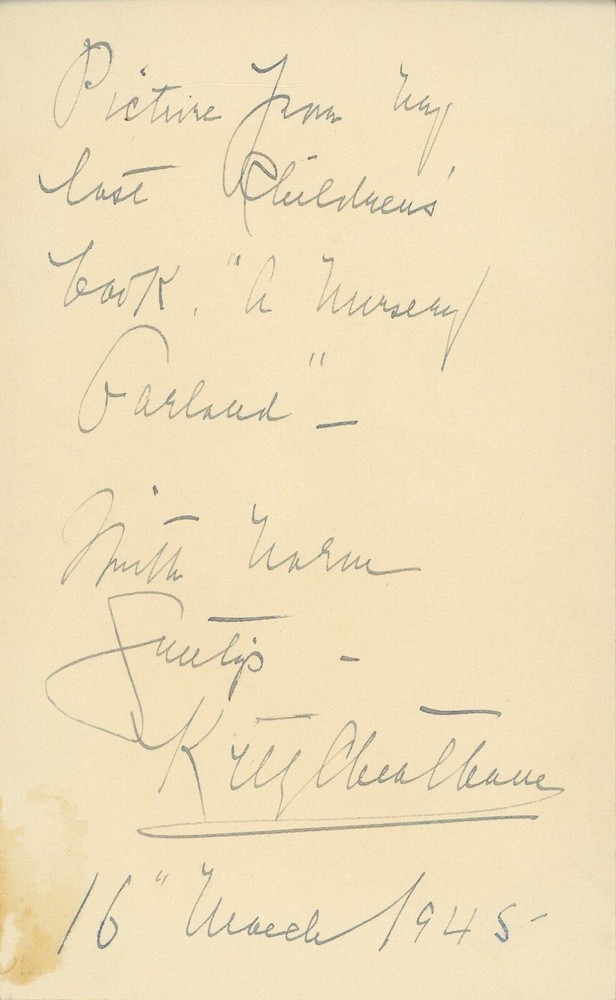 Picture from my
last Children's
book, "A Nursery
Garland" —
With warm
Greetings —
Kitty Cheatham
16" March 1945